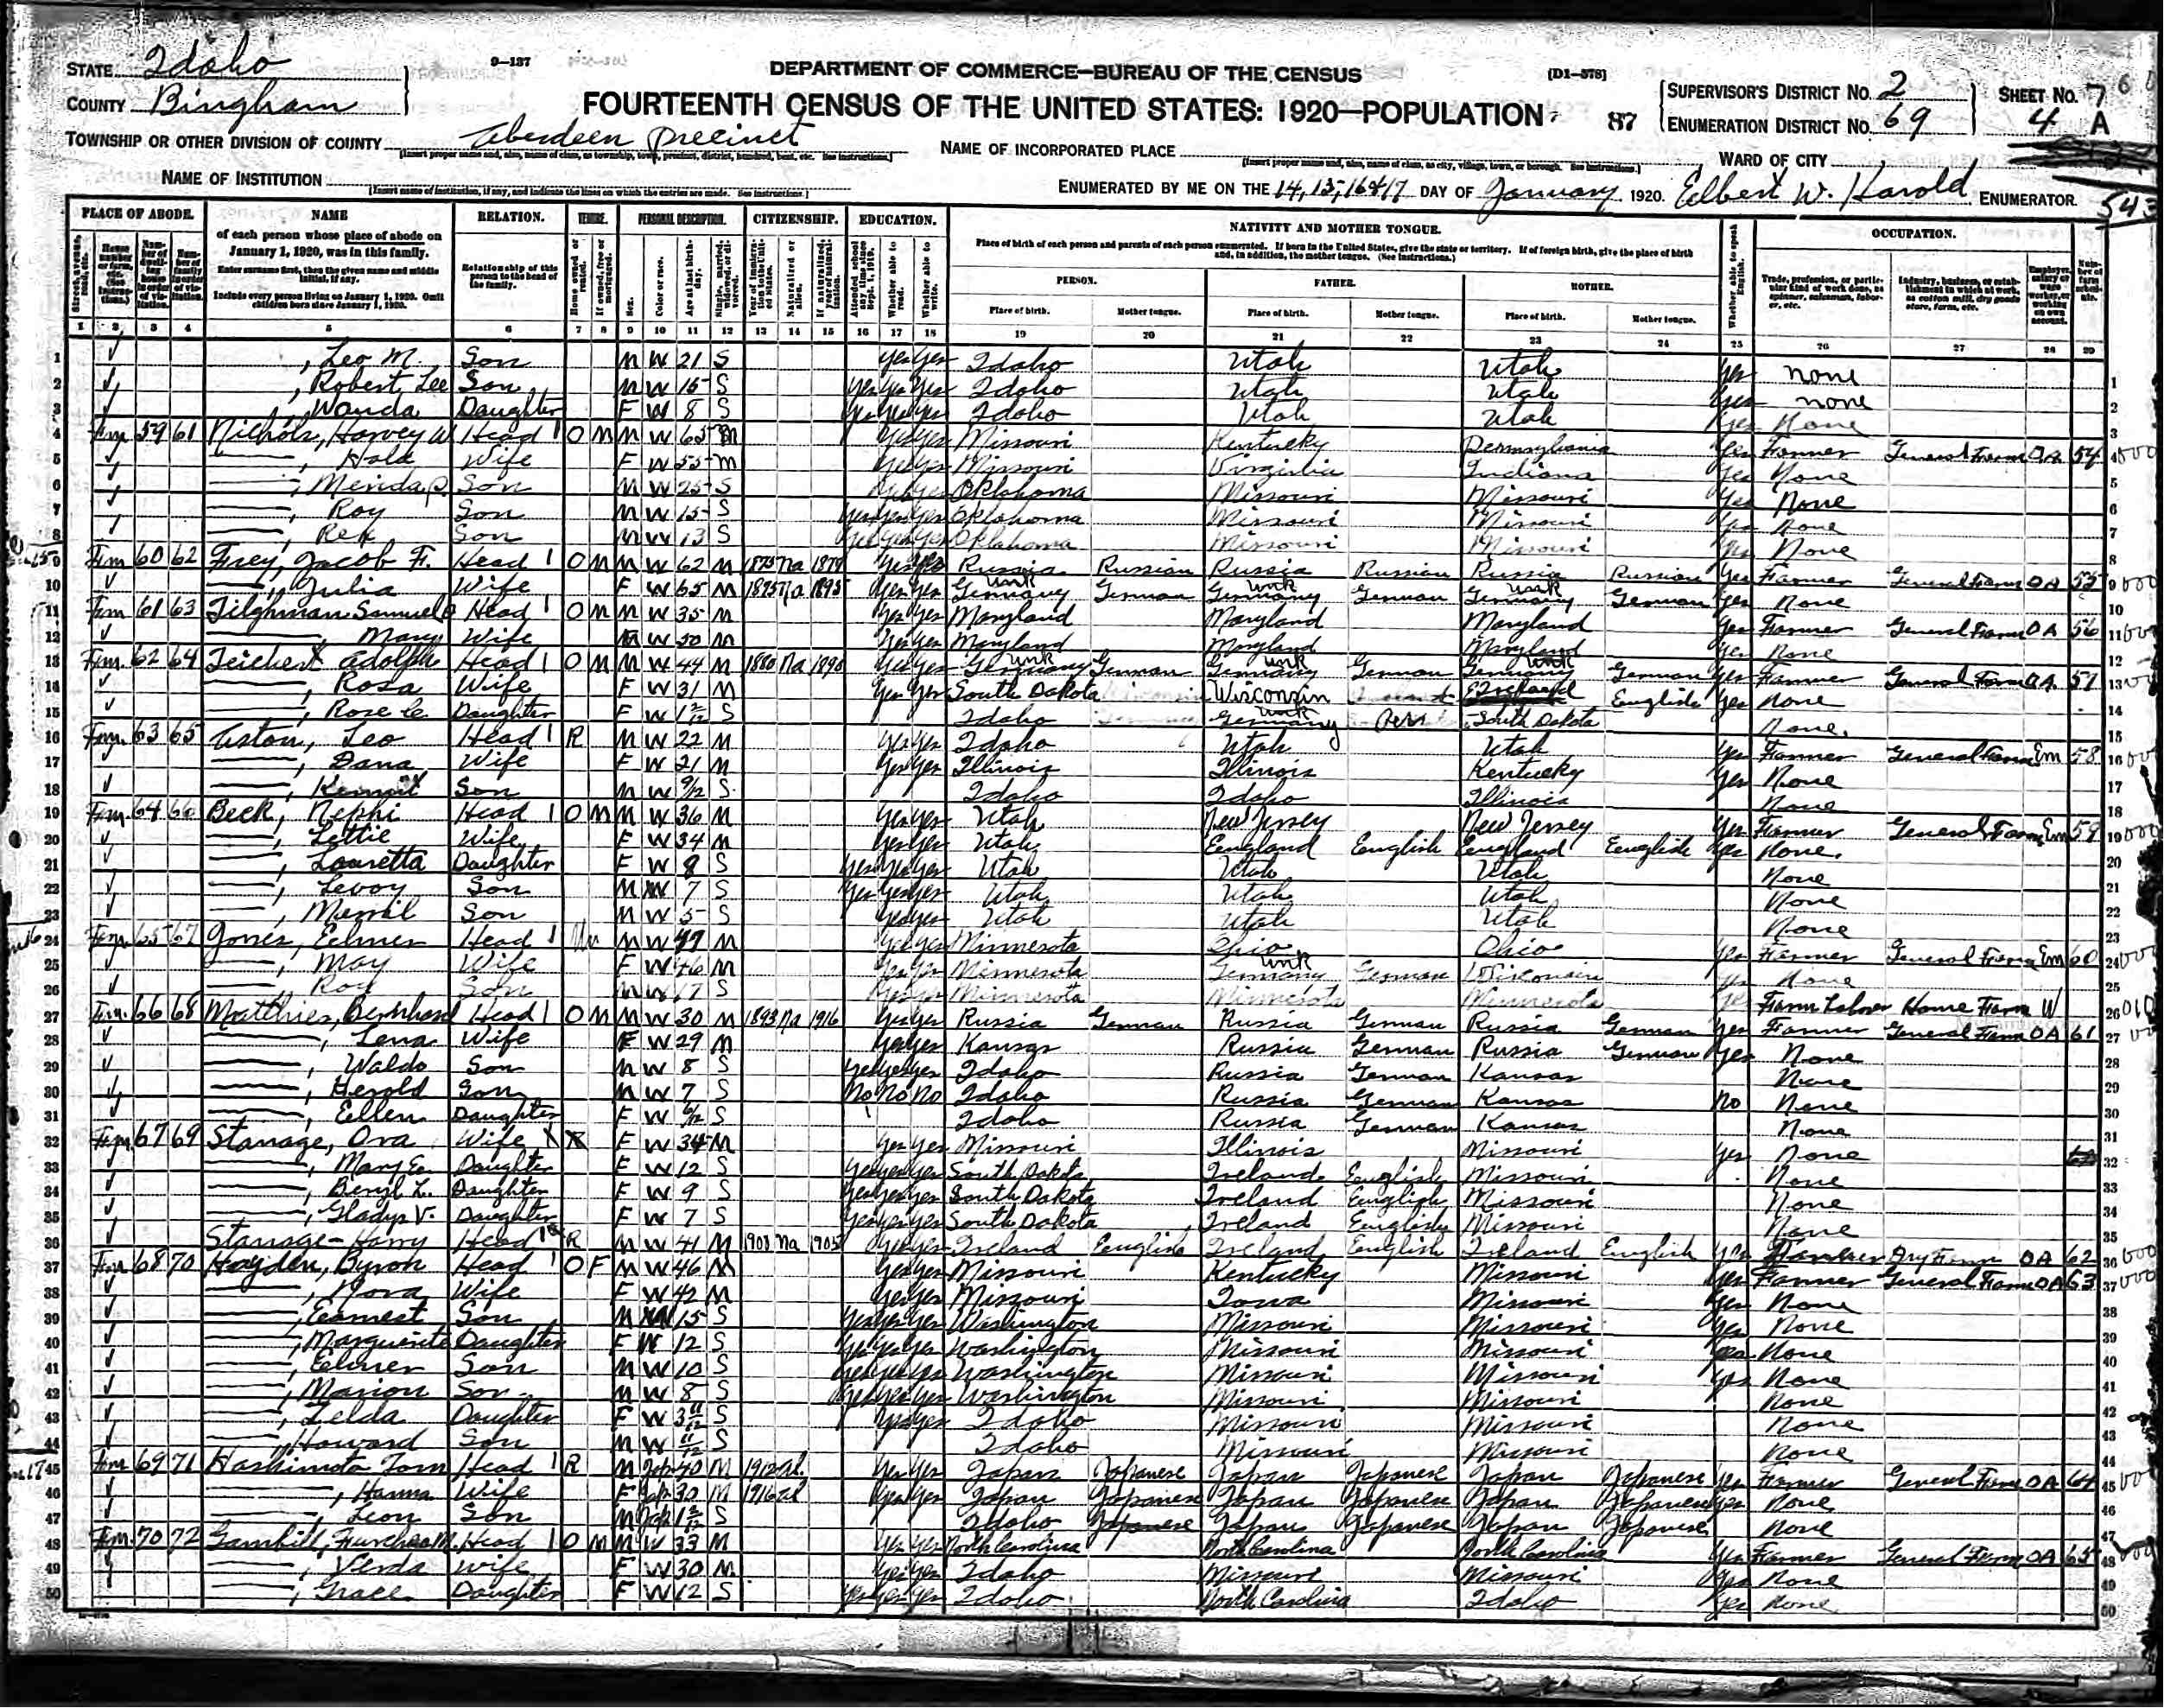 STATE Idaho
COUNTY Bingham
9—137
DEPARTMENT OF COMMERCE—BUREAU OF THE CENSUS
[D1—578]
FOURTEENTH CENSUS OF THE UNITED STATES: 1920—POPULATION
87
SUPERVISOR'S DISTRICT No. 2
ENUMERATION DISTRICT No. 69
SHEET No. 7
4 A
TOWNSHIP OR OTHER DIVISION OF COUNTY Aberdeen Precinct
NAME OF INCORPORATED PLACE
WARD OF CITY
NAME OF INSTITUTION
[Insert name of institution, if any, and indicate the lines on which the entries are made. See instructions.]
ENUMERATED BY ME ON THE 14, 15, 16 & 17 DAY OF January, 1920. Elbert W. Harold, ENUMERATOR.
543
PLACE OF ABODE. NAME RELATION. TENURE. PERSONAL DESCRIPTION. CITIZENSHIP. EDUCATION. NATIVITY AND MOTHER TONGUE. OCCUPATION.
of each person whose place of abode on January 1, 1920, was in this family.
Enter surname first, then the given name and middle initial, if any.
Include every person living on January 1, 1920. Omit children born since January 1, 1920.
Relationship of this person to the head of the family.
Place of birth of each person and parents of each person enumerated. If born in the United States, give the state or territory. If of foreign birth, give the place of birth and, in addition, the mother tongue. (See instructions.)
PERSON. FATHER. MOTHER.
Place of birth. Mother tongue. Place of birth. Mother tongue. Place of birth. Mother tongue.
1 2 3 4 5 6 7 8 9 10 11 12 13 14 15 16 17 18 19 20 21 22 23 24 25 26 27 28 29
1 , Leo M. Son M W 21 S Yes Yes Idaho Utah Utah Yes None
2 , Robert Lee Son M W 15 S Yes Yes Yes Idaho Utah Utah Yes None
3 , Wanda Daughter F W 8 S Yes Yes Yes Idaho Utah Utah Yes None
4 Fm 59 61 Nichols, Harvey W Head 1 O M M W 65 M Yes Yes Missouri Kentucky Pennsylvania Yes Farmer General Farm OA 54
5 Wife F W 55 M Yes Yes Missouri Virginia Indiana Yes None
6 Son M W 25 S Yes Yes Oklahoma Missouri Missouri Yes None
7 , Roy Son M W 15 S Yes Yes Yes Oklahoma Missouri Missouri Yes None
8 , Rex Son M W 13 S Yes Yes Yes Oklahoma Missouri Missouri Yes None
9 Fm 60 62 Frey, Jacob F. Head 1 O M M W 62 M 1875 Na 1879 Yes Russia Russian Russia Russian Russia Russian Yes Farmer General Farm OA 55
10 , Julia Wife F W 65 M 1875 Na 1895 Yes Yes Germany German Germany German Germany German Yes None
11 Fm 61 63 Tilghman Samuel Head 1 O M M W 35 M Yes Yes Maryland Maryland Maryland Yes Farmer General Farm OA 56
12 , Mary Wife W 50 M Yes Yes Maryland Maryland Maryland Yes None
13 Fm. 62 64 Teichert Adolph Head 1 O M M W 44 M 1880 Na 1890 Yes Yes Germany German Germany German Germany German Yes Farmer General Farm OA 57
14 , Rosa Wife F W 31 M Yes Yes South Dakota Wisconsin English Yes None
15 , Rose C. Daughter F W 1 2/12 S Idaho Germany South Dakota None
16 Fm. 63 65 Aston, Leo Head 1 R M W 22 M Yes Yes Idaho Utah Utah Yes Farmer General Farm Em 58
17 , Dana Wife F W 21 M Yes Yes Illinois Illinois Kentucky Yes None
18 , Kermit Son M W 9/12 S Idaho Idaho Illinois None
19 Fm. 64 66 Beck, Nephi Head 1 O M M W 36 M Yes Yes Utah New Jersey New Jersey Yes Farmer General Farm Em 59
20 , Lettie Wife F W 34 M Yes Yes Utah England English England English Yes None
21 , Louretta Daughter F W 8 S Yes Yes Yes Utah Utah Utah None
22 , Levoy Son M W 7 S Yes Yes Yes Utah Utah Utah None
23 , Merril Son M W 5 S Yes Yes Utah Utah Utah None
24 Fm 65 67 Jones, Elmer Head 1 Un M W 49 M Yes Yes Minnesota Ohio Ohio Yes Farmer General Farm Em 60
25 , May Wife F W 46 M Yes Yes Minnesota Germany German Wisconsin Yes None
26 , Roy Son M W 17 S Yes Yes Minnesota Minnesota Minnesota Yes Farm Labor Home Farm W
27 Fm. 66 68 Matthies, Bernhard Head 1 O M M W 30 M 1893 Na 1916 Yes Yes Russia German Russia German Russia German Yes Farmer General Farm OA 61
28 , Lena Wife F W 29 M Yes Yes Kansas Russia German Russia German Yes None
29 , Waldo Son M W 8 S Yes Yes Yes Idaho Russia German Kansas None
30 , Herold Son M W 7 S No No No Idaho Russia German Kansas No None
31 , Ellen Daughter F W 6/12 S Idaho Russia German Kansas None
32 Fm. 67 69 Stanage, Ora Wife X F W 34 M Yes Yes Missouri Illinois Missouri Yes None
33 , Mary E. Daughter F W 12 S Yes Yes Yes South Dakota Ireland English Missouri None
34 , Beryl L. Daughter F W 9 S Yes Yes Yes South Dakota Ireland English Missouri None
35 , Gladys V. Daughter F W 7 S Yes Yes Yes South Dakota Ireland English Missouri None
36 Stanage - Harry Head 1 R M W 41 M Na 1905 Yes Yes Ireland English Ireland English Ireland English Yes Farmer Dry Farm OA 62
37 Fm 68 70 Hayden, Byron Head 1 O F M W 46 M Yes Yes Missouri Kentucky Missouri Yes Farmer General Farm OA 63
38 , Nora Wife F W 42 M Yes Yes Missouri Iowa Missouri Yes None
39 , Earnest Son M W 15 S Yes Yes Yes Washington Missouri Missouri Yes None
40 , Marguerite Daughter F W 12 S Yes Yes Yes Washington Missouri Missouri Yes None
41 , Elmer Son M W 10 S Yes Yes Yes Washington Missouri Missouri Yes None
42 , Marion Son M W 8 S Yes Yes Yes Washington Missouri Missouri None
43 , Zelda Daughter F W 3 11/12 S Yes Yes Idaho Missouri Missouri None
44 , Howard Son M W 11/12 S Idaho Missouri Missouri None
45 Fm 69 71 Hashimoto Tom Head 1 R M Jap 40 M 1912 Al. Yes Yes Japan Japanese Japan Japanese Japan Japanese Yes Farmer General Farm OA 64
46 , Hanna Wife F Jap 30 M 1916 Al Yes Yes Japan Japanese Japan Japanese Japan Japanese Yes None
47 , Leon Son M Jap S Idaho Japanese Japan Japanese Japan Japanese None
48 Fm. 70 72 Gambill, Head 1 O M M W 33 M Yes Yes North Carolina North Carolina North Carolina Yes Farmer General Farm OA 65
49 , Verda Wife F W 30 M Yes Yes Idaho Missouri Missouri Yes None
50 , Grace Daughter F W 12 S Yes Yes Yes Idaho North Carolina Idaho Yes None